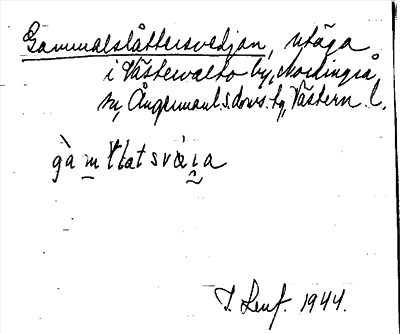 Gammalslåttersvedjan, utäga
i Västervalto by, Nordingrå
sn, Ångermanl. s. doms. tg, Västern. l.
gàm tlatsvàıa
1944.